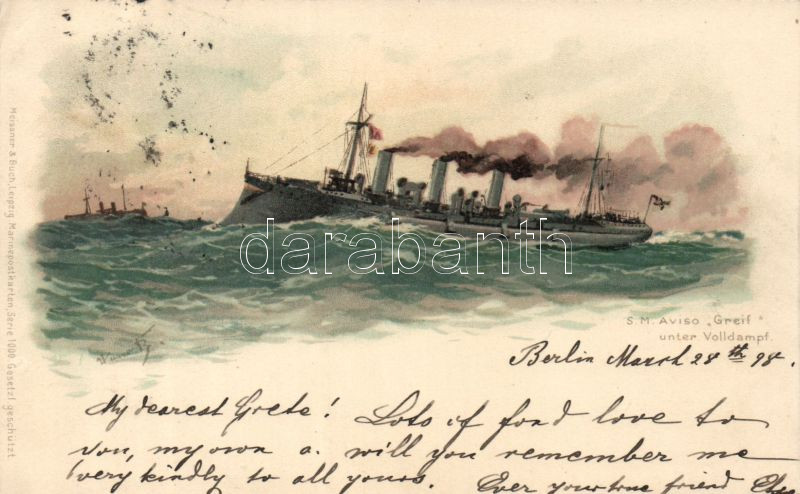 Meissner & Buch, Leipzig Marinepostkarten, Serie 1008 Gesetzl. geschützt
darabanth
S. M. Aviso „Greif“
unter Volldampf.
Berlin March 28th 98.
My dearest Grete! Lots of fond love to
you, my own a. will you remember me
very kindly to all yours. Ever your true friend